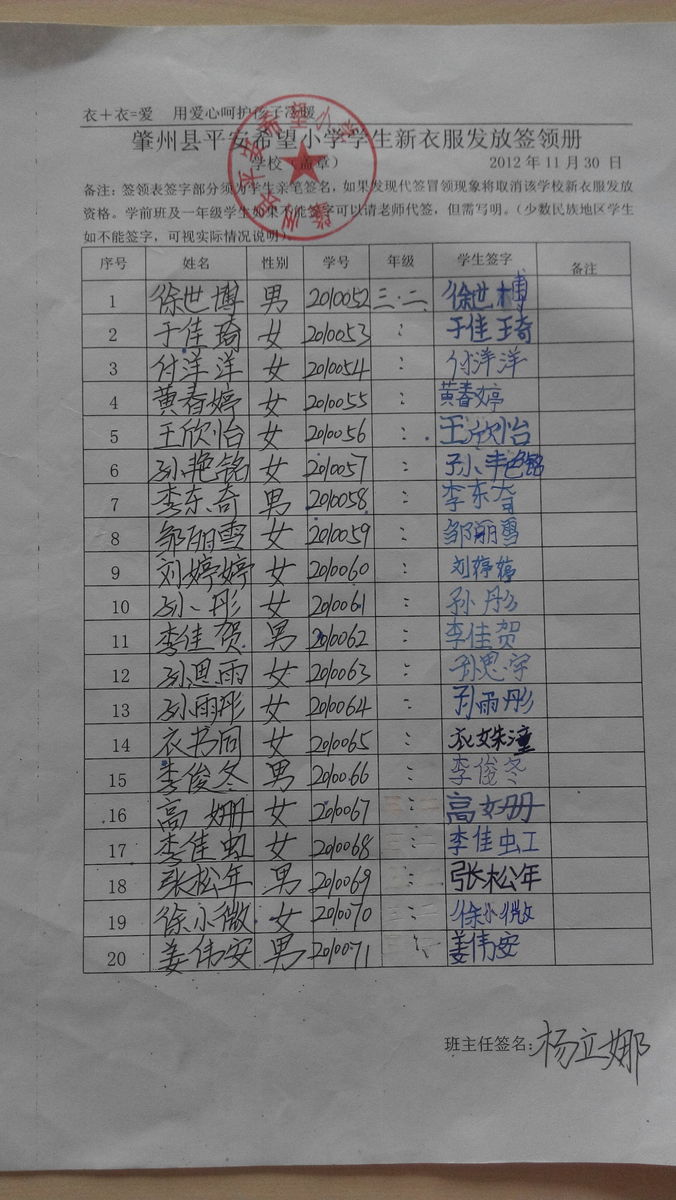 衣＋衣=爱　用爱心呵护孩子冷暖
肇州县平安希望小学学生新衣服发放签领册
学校（盖章）　2012年11月30日
备注：签领表签字部分须为学生亲笔签名，如果发现代签冒领现象将取消该学校新衣服发放
资格。学前班及一年级学生如果不能签字可以请老师代签，但需写明。（少数民族地区学生
如不能签字，可视实际情况说明）。
序号 姓名 性别 学号 年级 学生签字 备注
1 徐世博 男 2010052 三.二 徐世博
2 于佳琦 女 2010053 : 于佳琦
3 付洋洋 女 2010054 : 付洋洋
4 黄春婷 女 2010055 : 黄春婷
5 王欣怡 女 2010056 : 王欣怡
6 孙艳铭 女 2010057 : 孙艳铭
7 李东奇 男 2010058 : 李东奇
8 邹丽雪 女 2010059 : 邹丽雪
9 刘婷婷 女 2010060 : 刘婷婷
10 孙彤 女 2010061 : 孙彤
11 李佳贺 男 2010062 : 李佳贺
12 孙思雨 女 2010063 : 孙思宇
13 孙雨彤 女 2010064 : 孙雨彤
14 衣书同 女 2010065 : 衣姝潼
15 李俊冬 男 2010066 : 李俊冬
16 高姗 女 2010067 : 高姗
17 李佳虹 女 2010068 : 李佳虹
18 张松年 男 2010069 : 张松年
19 徐小微 女 2010070 : 徐小微
20 姜伟安 男 2010071 : 姜伟安
班主任签名：杨立娜